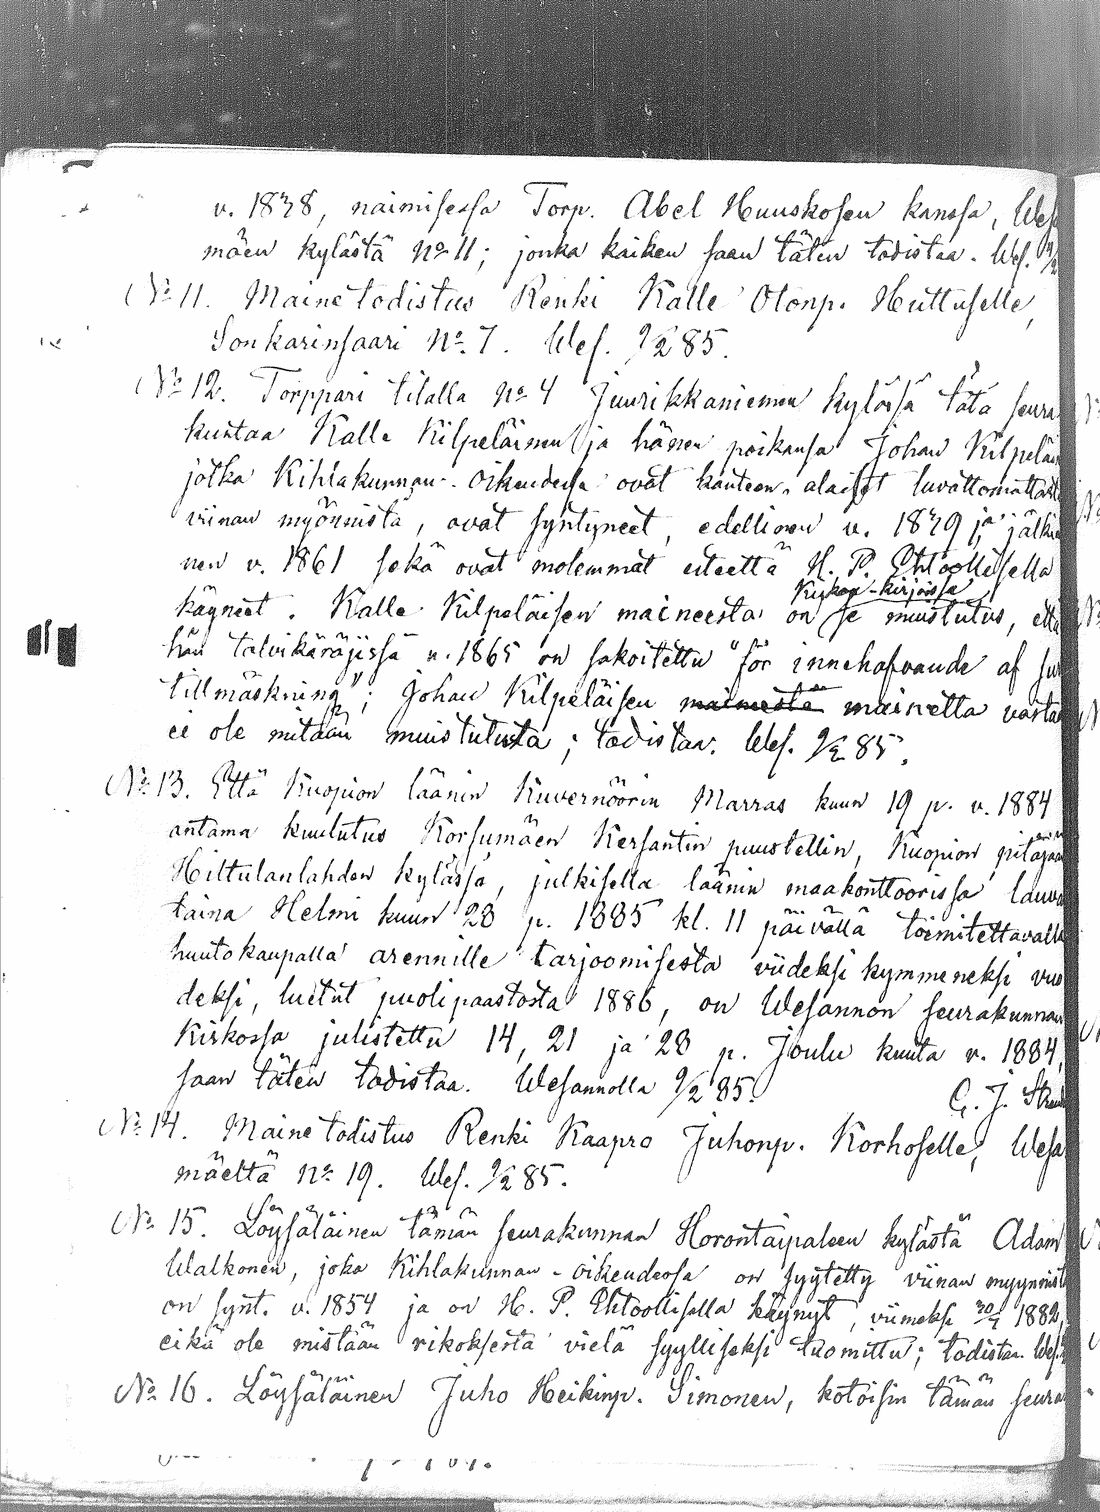 v. 1878, naimisessa Torp. Abel Huuskosen kanssa, Wes
mäen kylästä No 11; jonka kaiken saan täten todistaa. Wes.
No 11. Mainetodistus Renki Kalle Otonp. Huttuselle,
Sonkarinsaari No. 7. Wes. 9/2 85.
No 12. Torppari tilalla No 4 Juurikkaniemen kylässä tätä seura
kuntaa Kalle Kilpeläinen ja hänen poikansa Johan Kilpeläi
jotka Kihlakunnan-oikeudessa ovat kanteen-alaiset luvattomattasta
viinan myönnistä, ovat syntyneet, edellinen v. 1829 ja jälki
nen v. 1861 sekä ovat molemmat esteettä H. P. Ehtoollisella
käyneet. Kalle Kilpeläisen maineesta on Kirkon-kirjoissa se muistutus, että
hän talvikäräjissä v. 1865 on sakoitettu "för innehafvande af
tillmäskning"; Johan Kilpeläisen maineesta mainetta vastaa
ei ole mitään muistutusta; todistaa. Wes. 9/2 85.
No 13. Että Kuopion läänin Kuvernöörin Marras kuun 19 p. v. 1884
antama kuulutus Korsumäen Kersantin puustellin, Kuopion pitäjään
Hiltulanlahden kylässä, julkisella läänin maakonttoorissa lauva
taina Helmi kuun 28 p. 1885 kl. 11 päivällä toimitettavalla
huutokaupalla arennille tarjoomisesta viideksi kymmeneksi vuo
deksi, luetut puolipaastosta 1886, on Wesannon seurakunnan
Kirkossa julistettu 14, 21 ja 28 p. Joulu kuuta v. 1884,
saan täten todistaa. Wesannolla 9/2 85. G. J.
No 14. Mainetodistus Renki Kaapro Juhonp. Korhoselle, Wesa
mäeltä No 19. Wes. 9/2 85.
No 15. Löysäläinen tämän seurakunnan Horontaipaleen kylästä Adam
Walkonen, joka Kihlakunnan-oikeudessa on syytetty viinan myynnist
on synt. v. 1854 ja on H. P. Ehtoollisella käynyt, viimeksi 1882,
eikä ole mistään rikoksesta vielä syylliseksi tuomittu; todistaa. Wes.
No 16. Löysäläinen Juho Heikinp. Simonen, kotoisin tämän seura